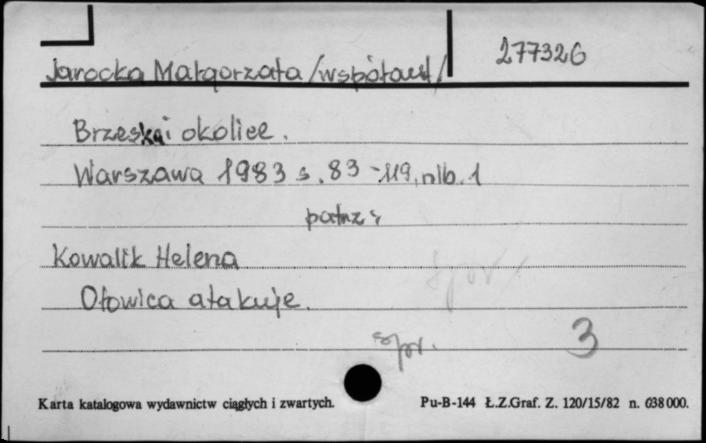 277326
Jarocka Małgorzata /współaut/
Brzeska i okolice.
Warszawa 1983 s. 83-119, nlb. 1
patrz:
Kowalik Helena
Ołowica atakuje.
spr.
spr. 3
Karta katalogowa wydawnictw ciągłych i zwartych. Pu-B-144 Ł.Z.Graf. Z. 120/15/82 n. 638000.